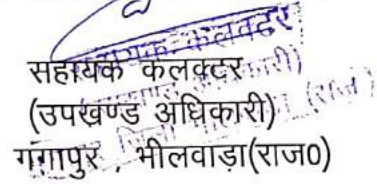 सहायक कलक्टर
(उपखण्ड अधिकारी)
गंगापुर , भीलवाड़ा(राज0)